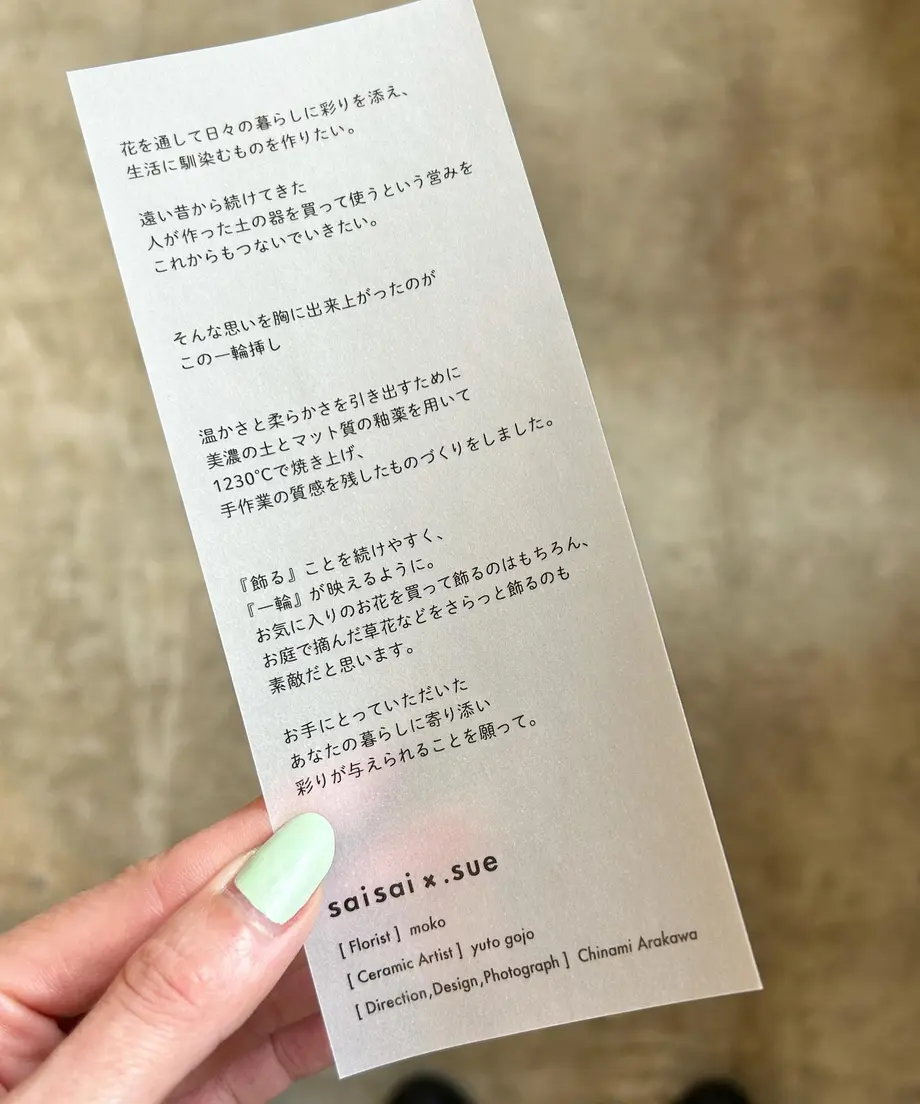 花を通して日々の暮らしに彩りを添え、
生活に馴染むものを作りたい。
遠い昔から続けてきた
人が作った土の器を買って使うという営みを
これからもつないでいきたい。
そんな思いを胸に出来上がったのが
この一輪挿し
温かさと柔らかさを引き出すために
美濃の土とマット質の釉薬を用いて
1230℃で焼き上げ、
手作業の質感を残したものづくりをしました。
『飾る』ことを続けやすく、
『一輪』が映えるように。
お気に入りのお花を買って飾るのはもちろん、
お庭で摘んだ草花などをさらっと飾るのも
素敵だと思います。
お手にとっていただいた
あなたの暮らしに寄り添い
彩りが与えられることを願って。
saisai × .sue
[ Florist ] moko
[ Ceramic Artist ] yuto gojo
[ Direction,Design,Photograph ] Chinami Arakawa